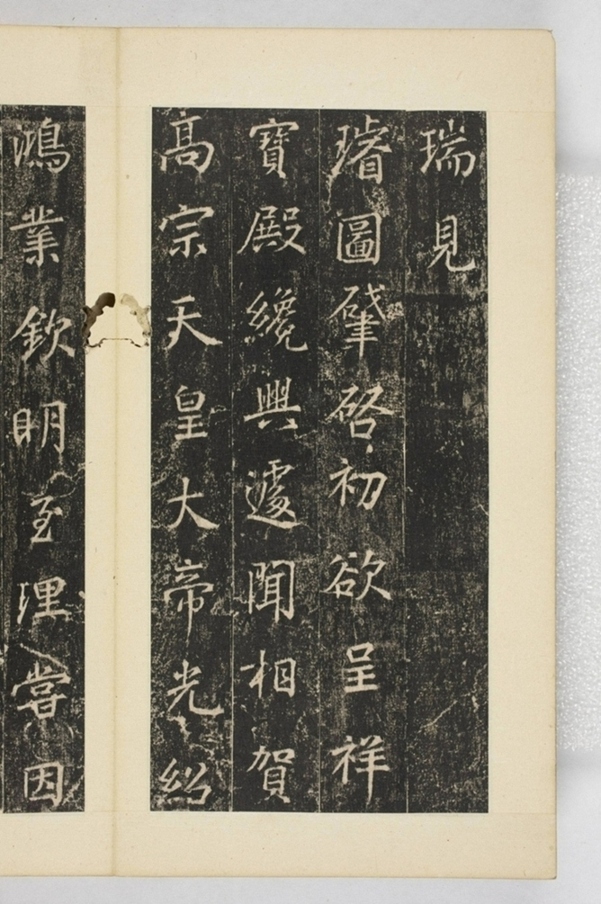 瑞見
璿圖肇啓初欲呈祥
寶殿纔興遽聞相賀
高宗天皇大帝光紹
鴻業欽明至理嘗因